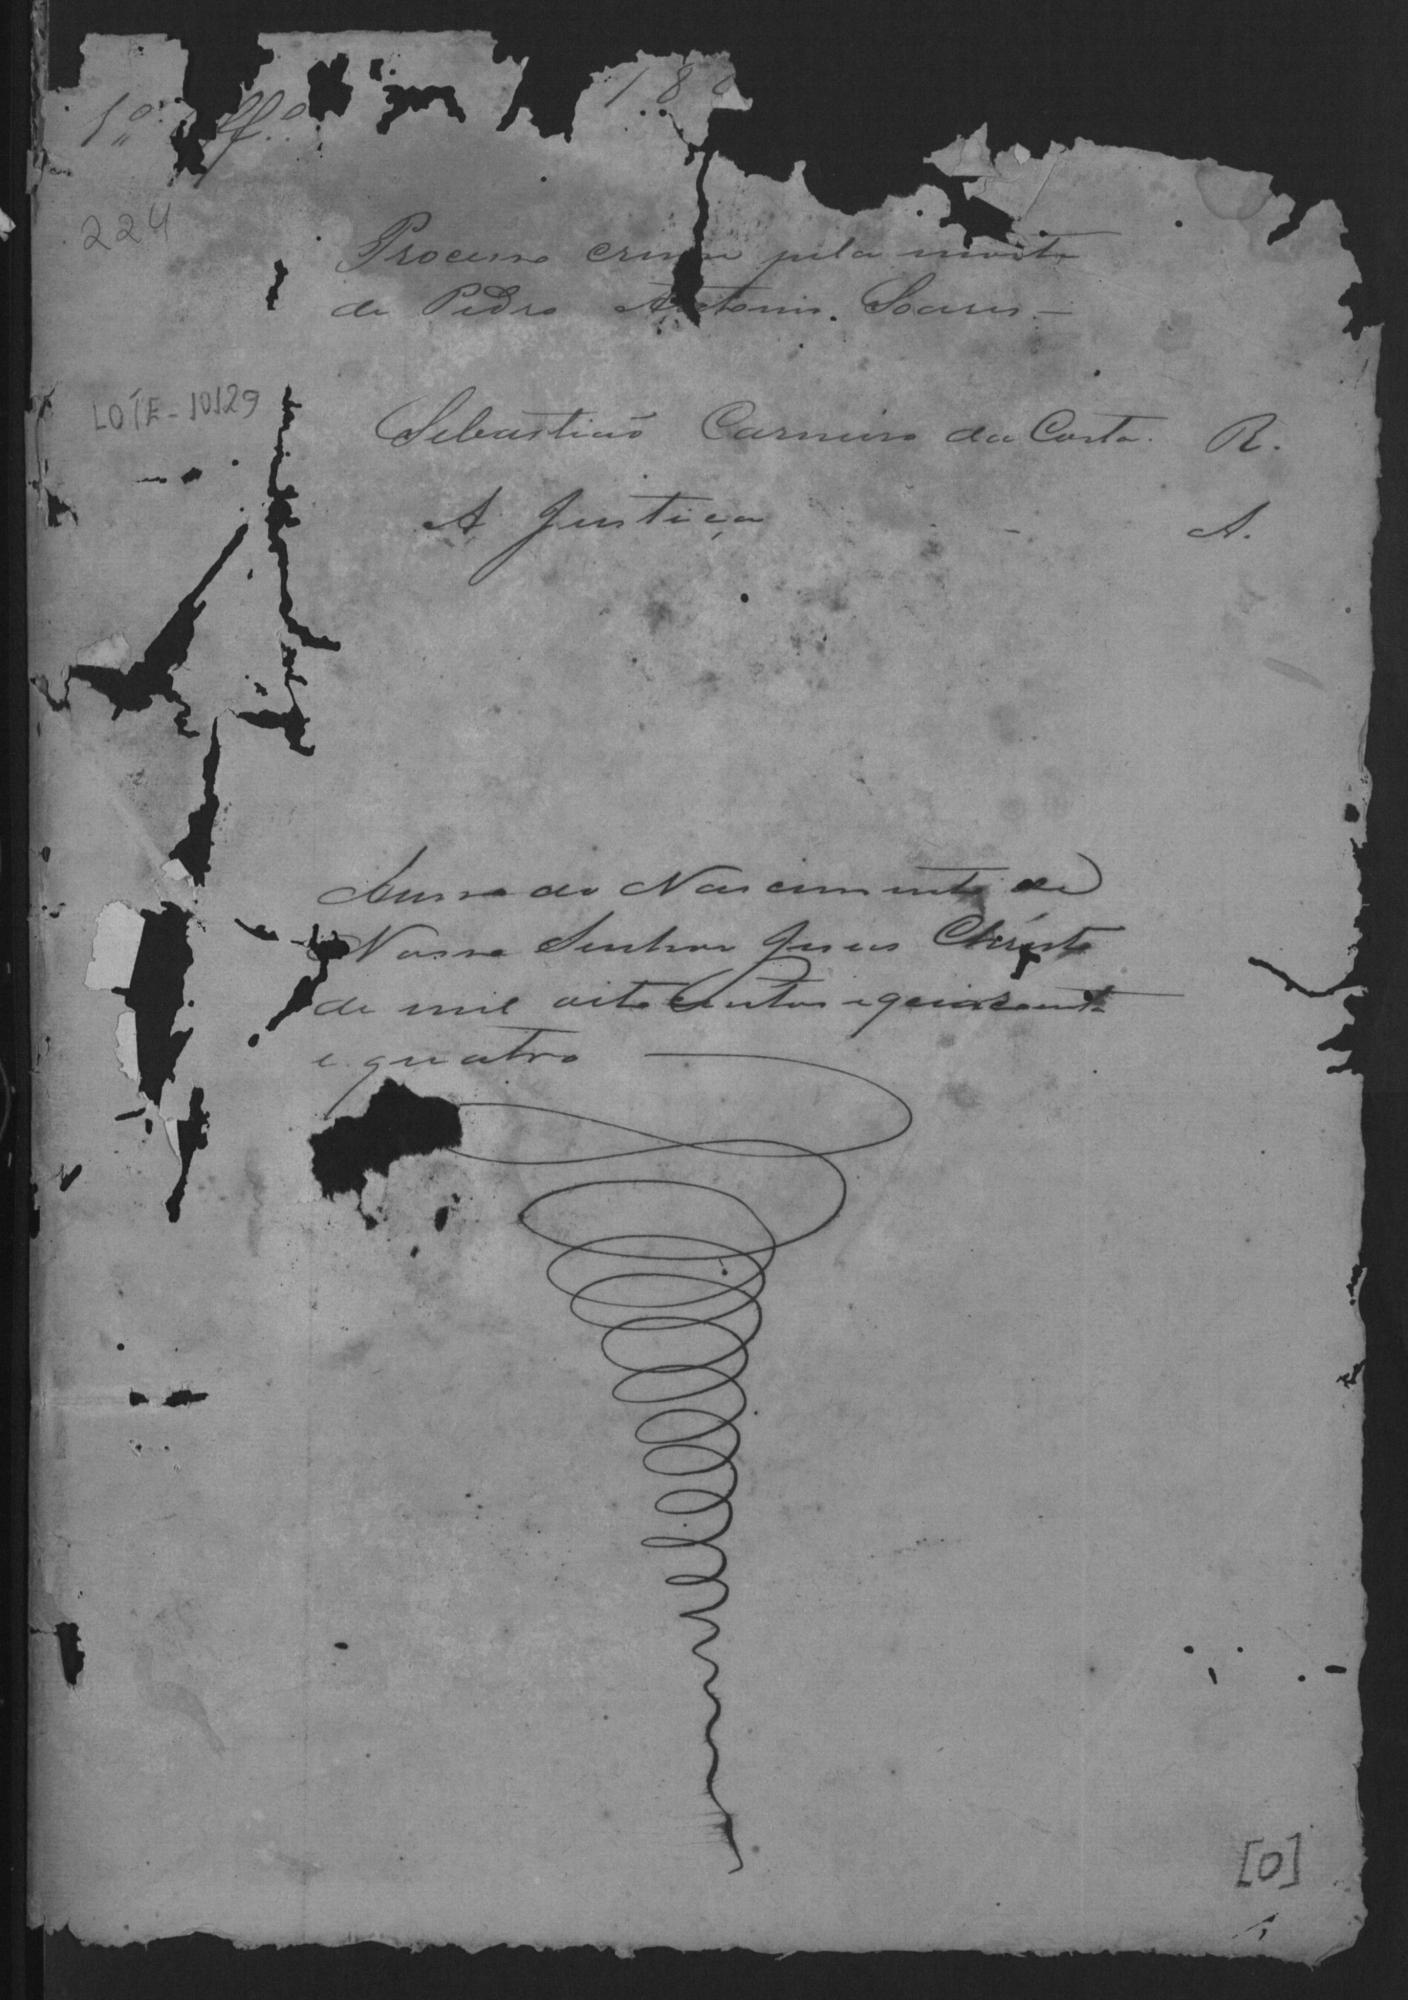 1º Off.º
18
224
Processo crime pela morte
de Pedro Antonio Soares.—
LOTE-10129
Sebastião Carneiro da Costa. R.
A Justiça A.
Anno do Nascimento de
Nosso Senhor Jesus Christo
de mil oito centos e
e quatro
[0]